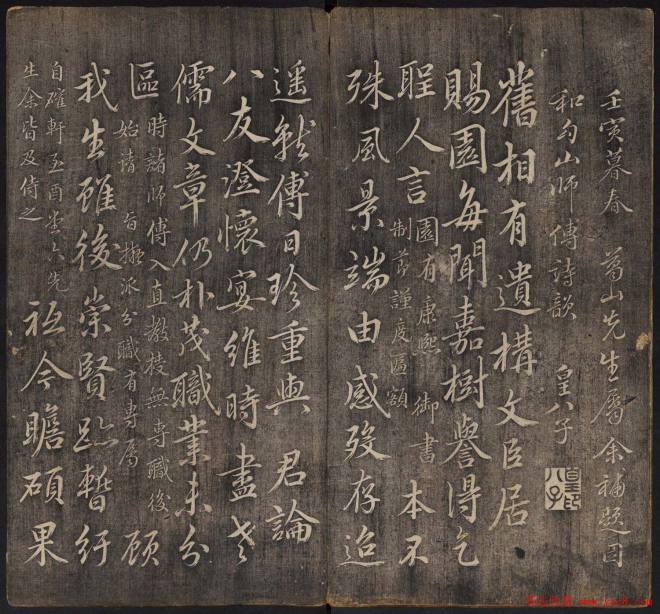 壬寅暮春 葛山先生屬余補題因
和勻山師傅詩韻 皇八子
皇八子印
舊相有遺構文臣居
賜園每聞嘉樹譽得乞
聖人言
園有康熙 御書
制節謹度匾額
本不
殊風景端由感歿存迨
遥就傅日珍重與 君論
八友澄懷宴維時盡老
儒文章仍朴茂職業未分
區
時諸師傅入直教授無專職後
始請 旨擬派分職有專屬
顧
我生雖後崇賢跡暫紆
自確軒至酉先
生余皆及侍之
祗今瞻碩果